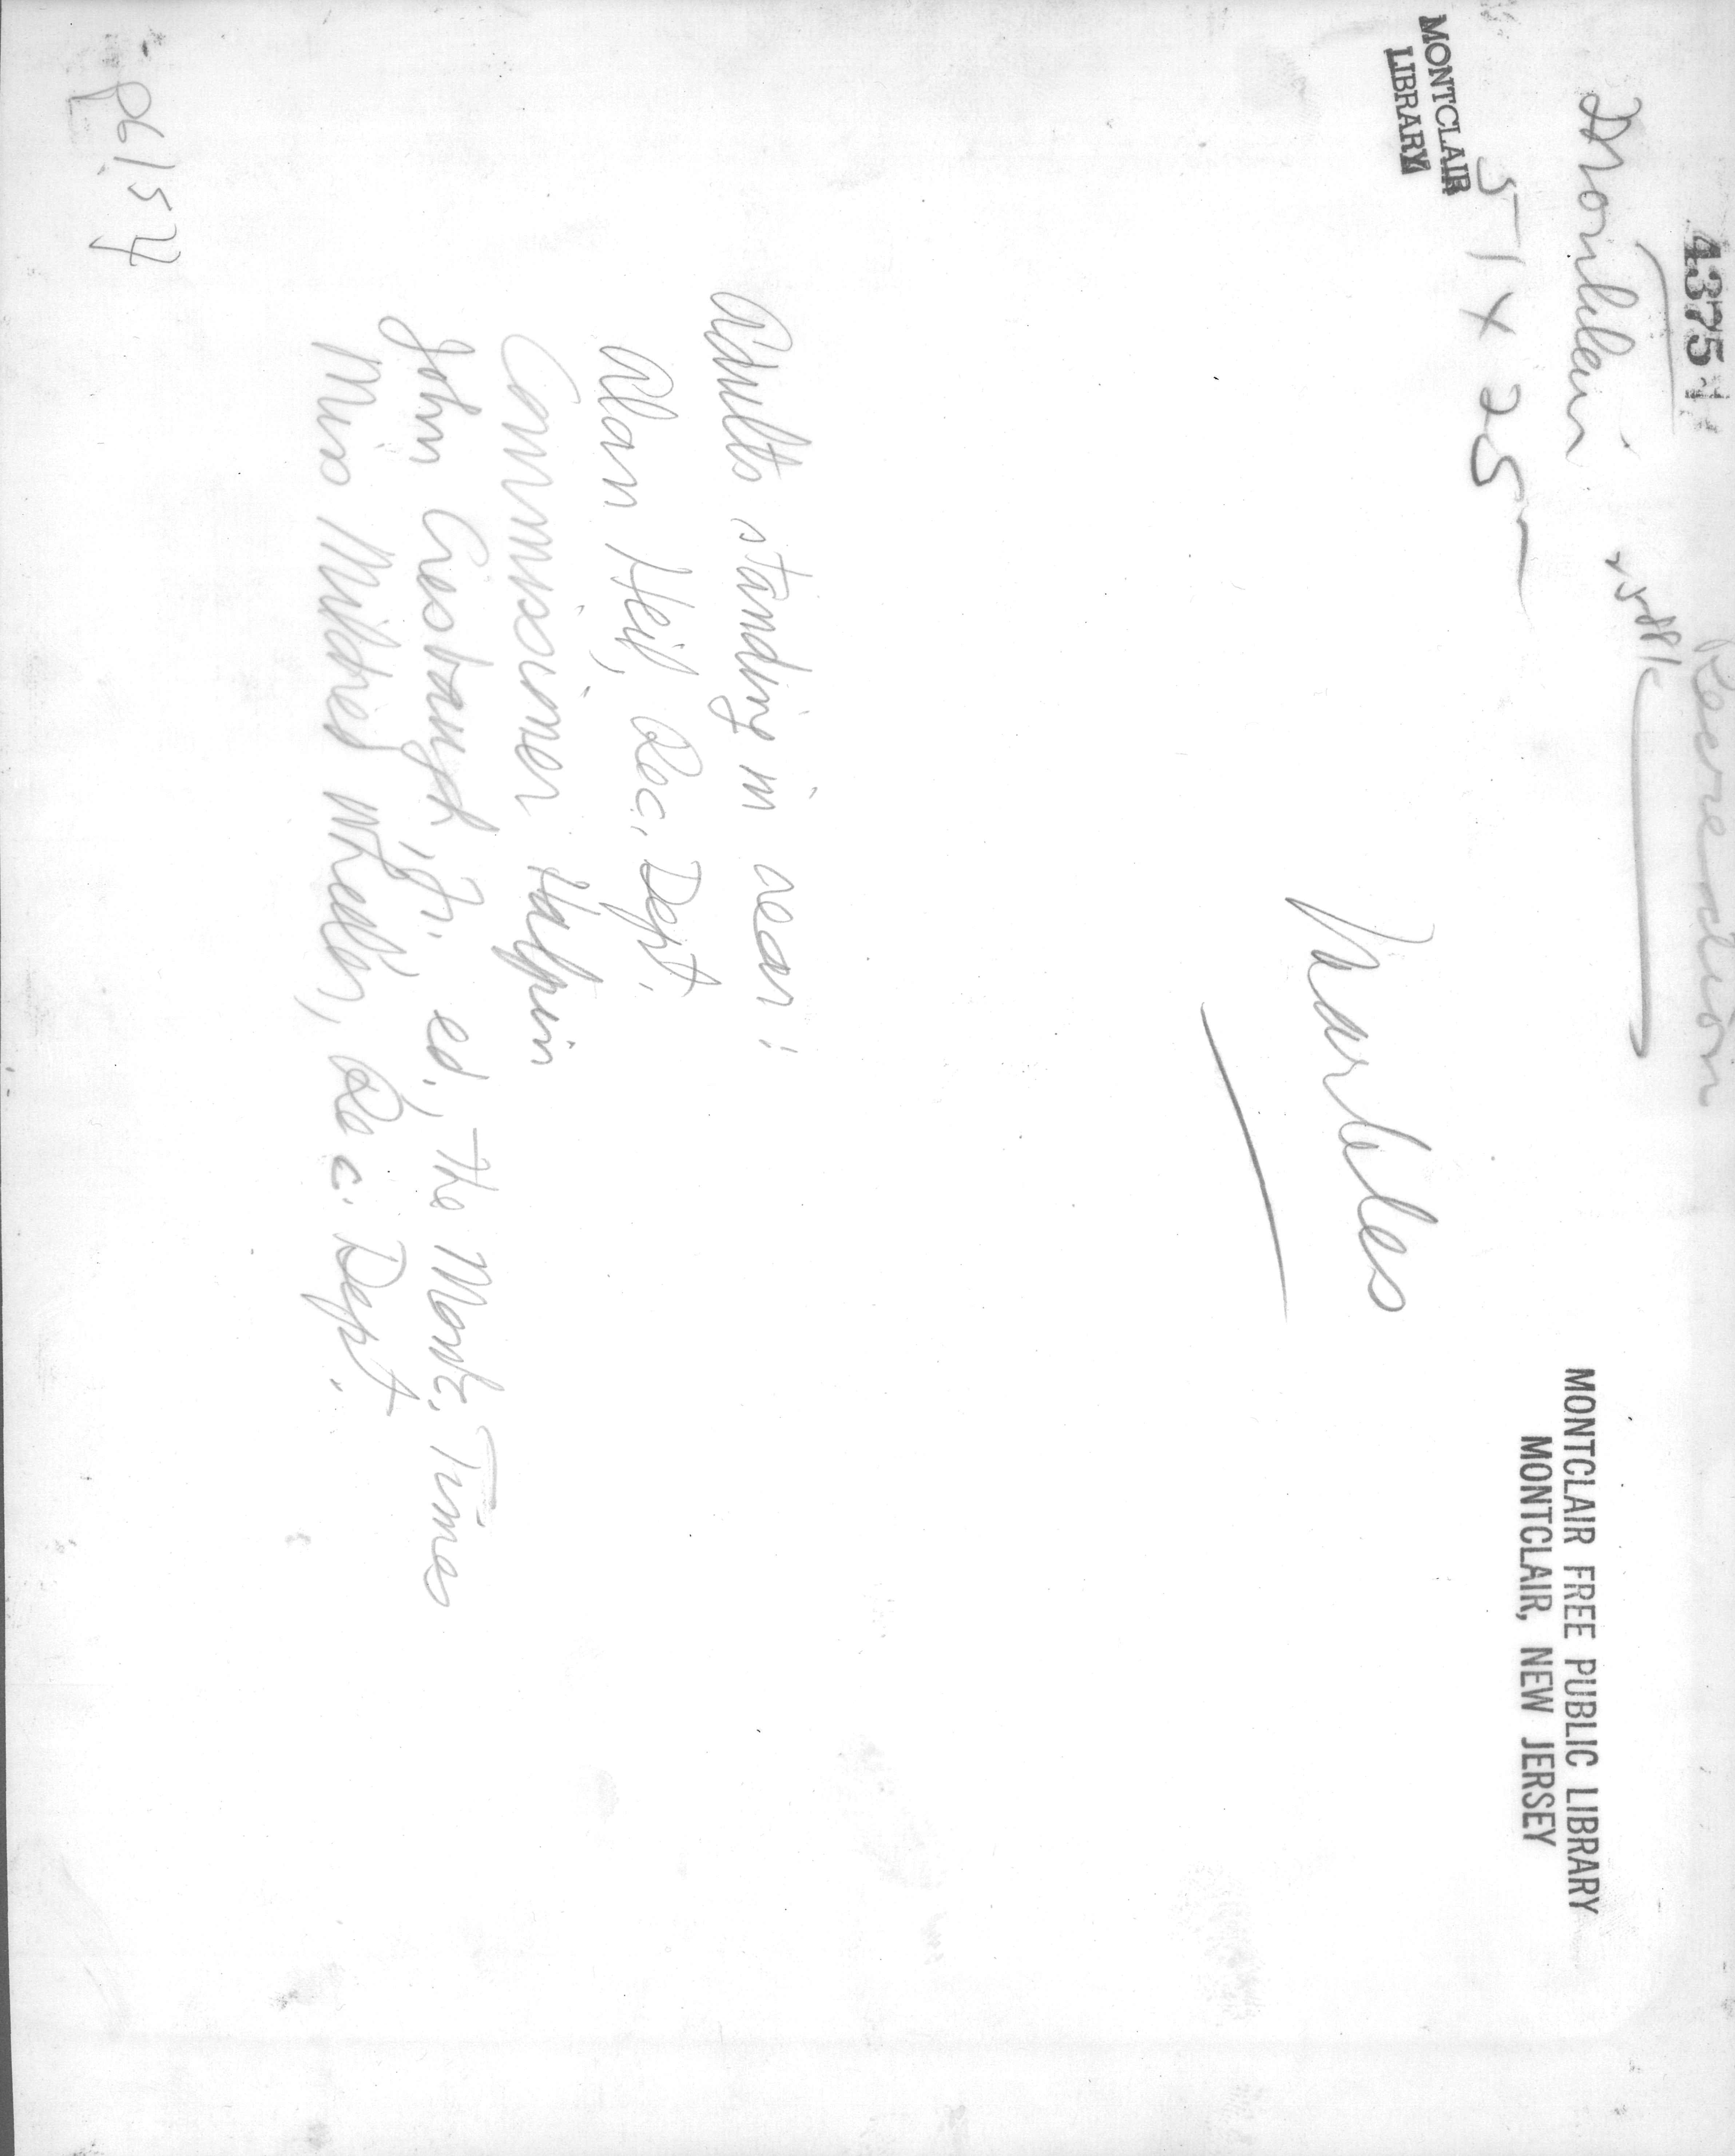 4375
Recreation
Montclair
51 x 25
MONTCLAIR
LIBRARY
MONTCLAIR FREE PUBLIC LIBRARY
MONTCLAIR, NEW JERSEY
Marbles
Adults standing in rear:
Alan Heil, Rec. Dept.
Commissioner Halpin
John Crestaugh, Jr. ed., the Montc. Times
Miss Mildred Wheeler, Rec. Dept.